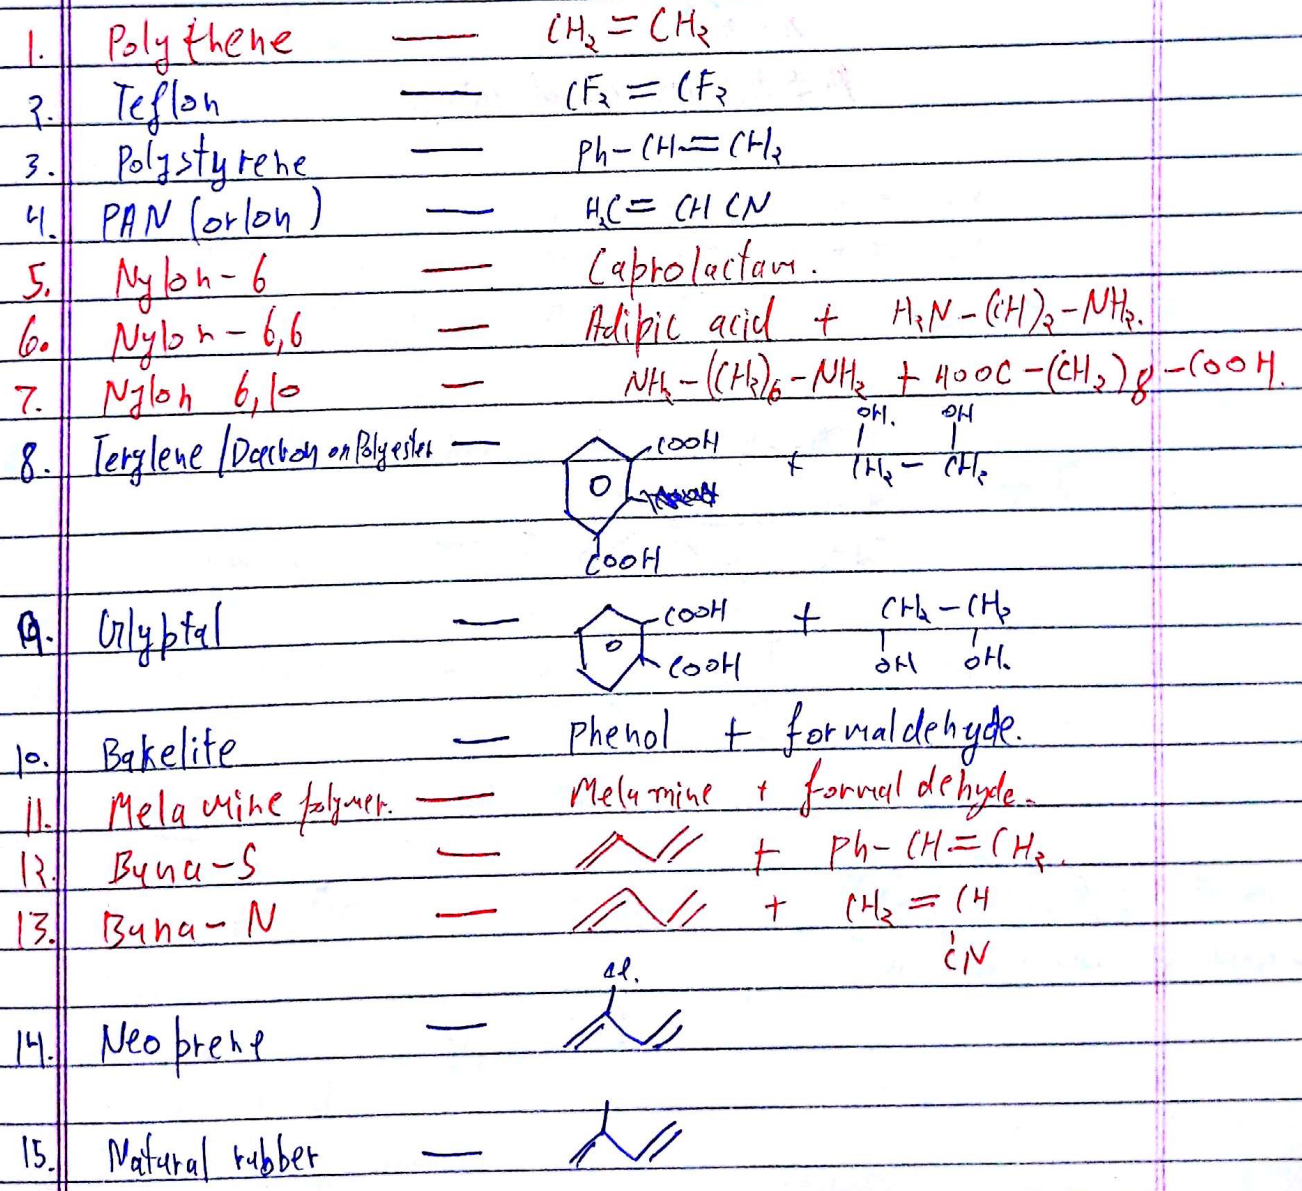 1. Polythene — CH2 = CH2
2. Teflon — CF2 = CF2
3. Polystyrene — Ph-CH=CH2
4. PAN (orlon) — H2C= CH CN
5. Nylon-6 — Caprolactam.
6. Nylon-6,6 — Adipic acid + H2N-(CH)2-NH2.
7. Nylon 6,10 — NH2-(CH2)6-NH2 + HOOC-(CH2)8-COOH.
OH. OH
8. Terylene / on Polyester — COOH + CH2 - CH2
COOH
9. Glyptal — COOH + CH2-CH2
COOH OH OH.
10. Bakelite — Phenol + formaldehyde.
11. Melamine polymer. — Melamine + formaldehyde.
12. Buna-S — + Ph-CH=CH2.
13. Buna-N — + CH2 = CH
CN
Cl.
14. Neoprene —
15. Natural rubber —